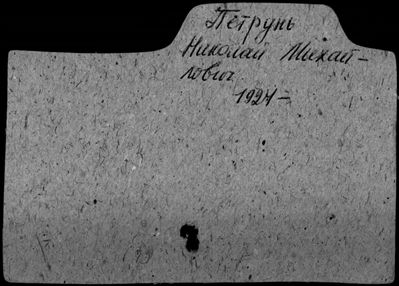 Петрунь
Николай Михай-
лович
1924-